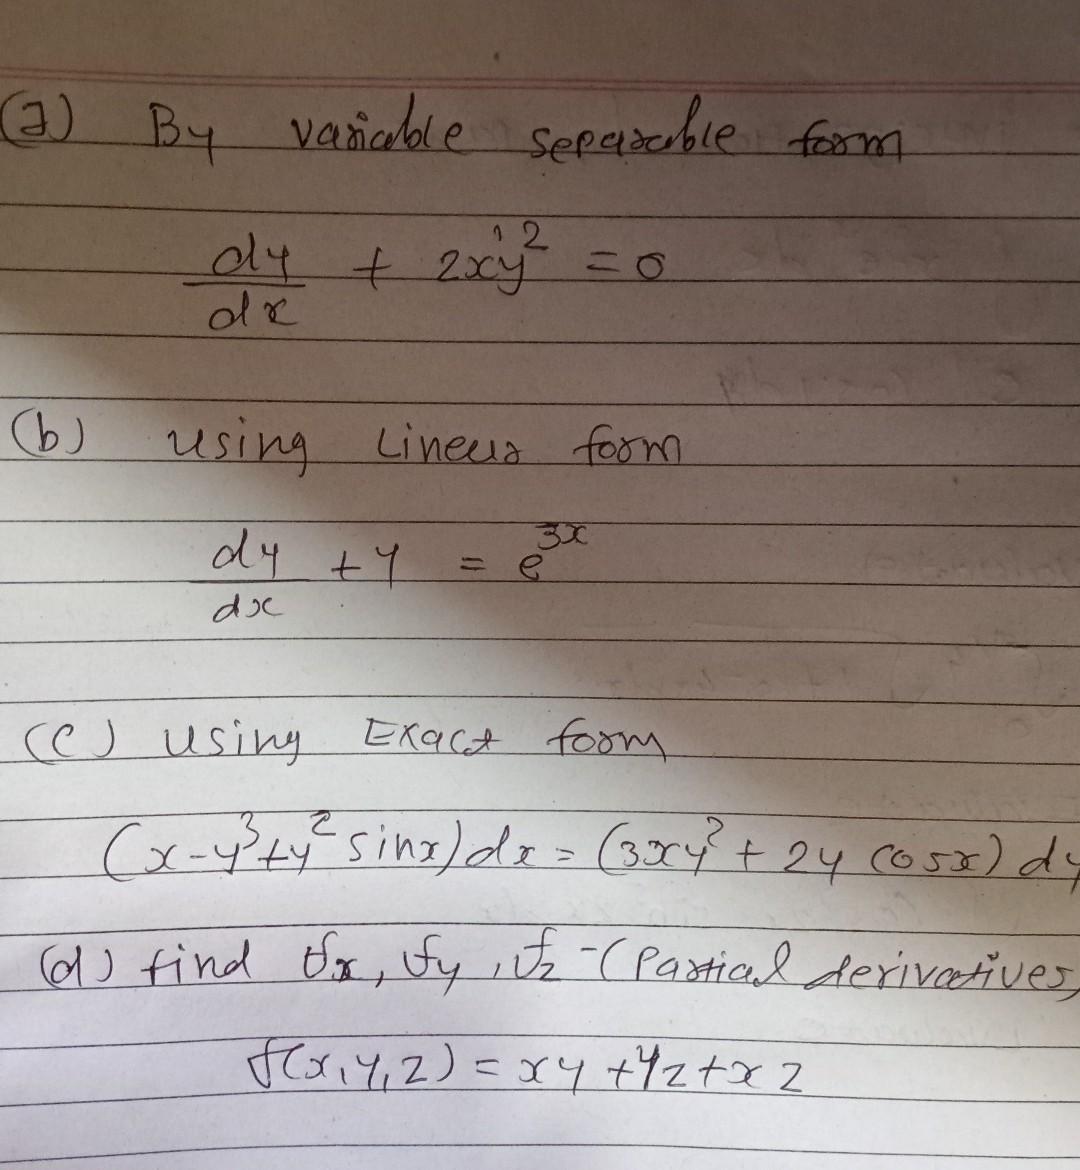 (a) By variable separable form
dy/dx + 2xy² = 0
(b) using Linear form
dy/dx + y = e³ˣ
(c) using Exact form
(x-y³+y² sinx)dx = (3xy²+2y cosx) dy
(d) find fx, fy, fz -(Partial derivatives)
f(x,y,z) = xy + yz + xz